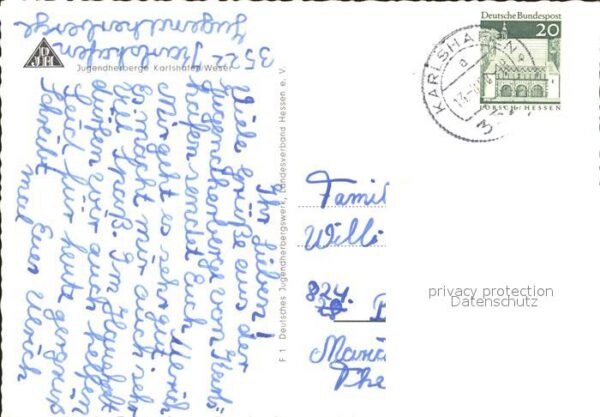 3522 Karlshafen
Jugendherberge
Ihr Lieben!
Viele Grüße aus der
Jugendherberge von Karls-
hafen sendet Euch Ulrich
Mir geht es sehr gut.
Es macht mir auch sehr
viel Spaß. Im Haushalt
dürfen wir auch helfen
für heute genug
Schreibt mal Euer Ulrich
DJH
Jugendherberge Karlshafen/Weser
F 1 Deutsches Jugendherbergswerk, Landesverband Hessen e. V.
Deutsche Bundespost
20
LORSCH/HESSEN
KARLSHAFEN
a
Famil
Willi
824
Maria
The
privacy protection
Datenschutz